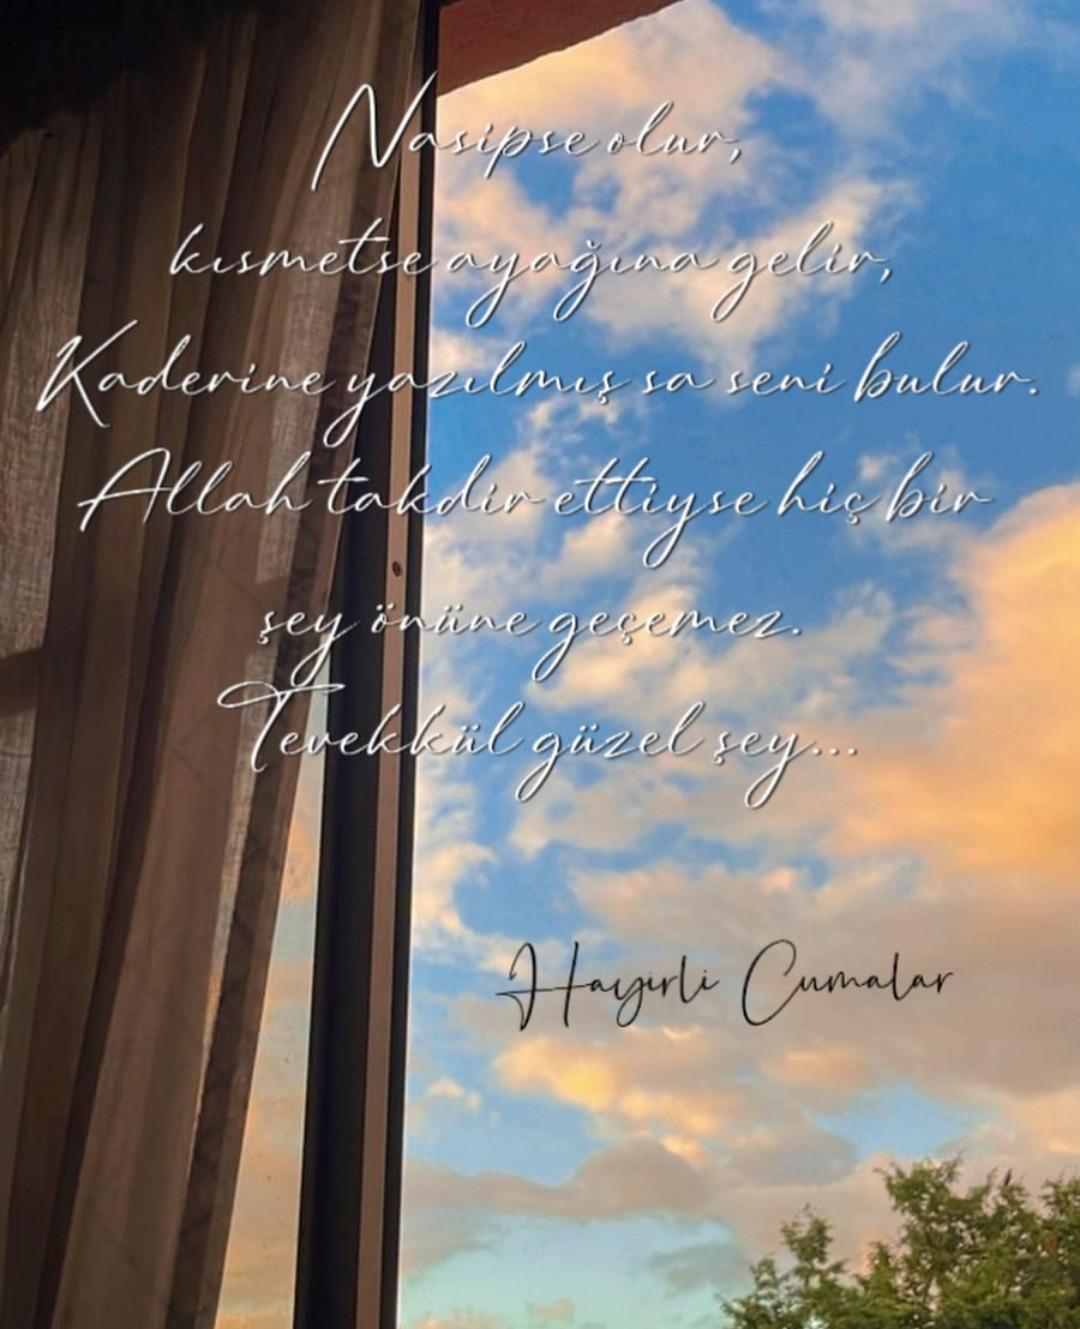 Nasipse olur,
kısmetse ayağına gelir,
Kaderine yazılmış sa seni bulur.
Allah takdir ettiyse hiç bir
şey önüne geçemez.
Tevekkül güzel şey...
Hayirli Cumalar